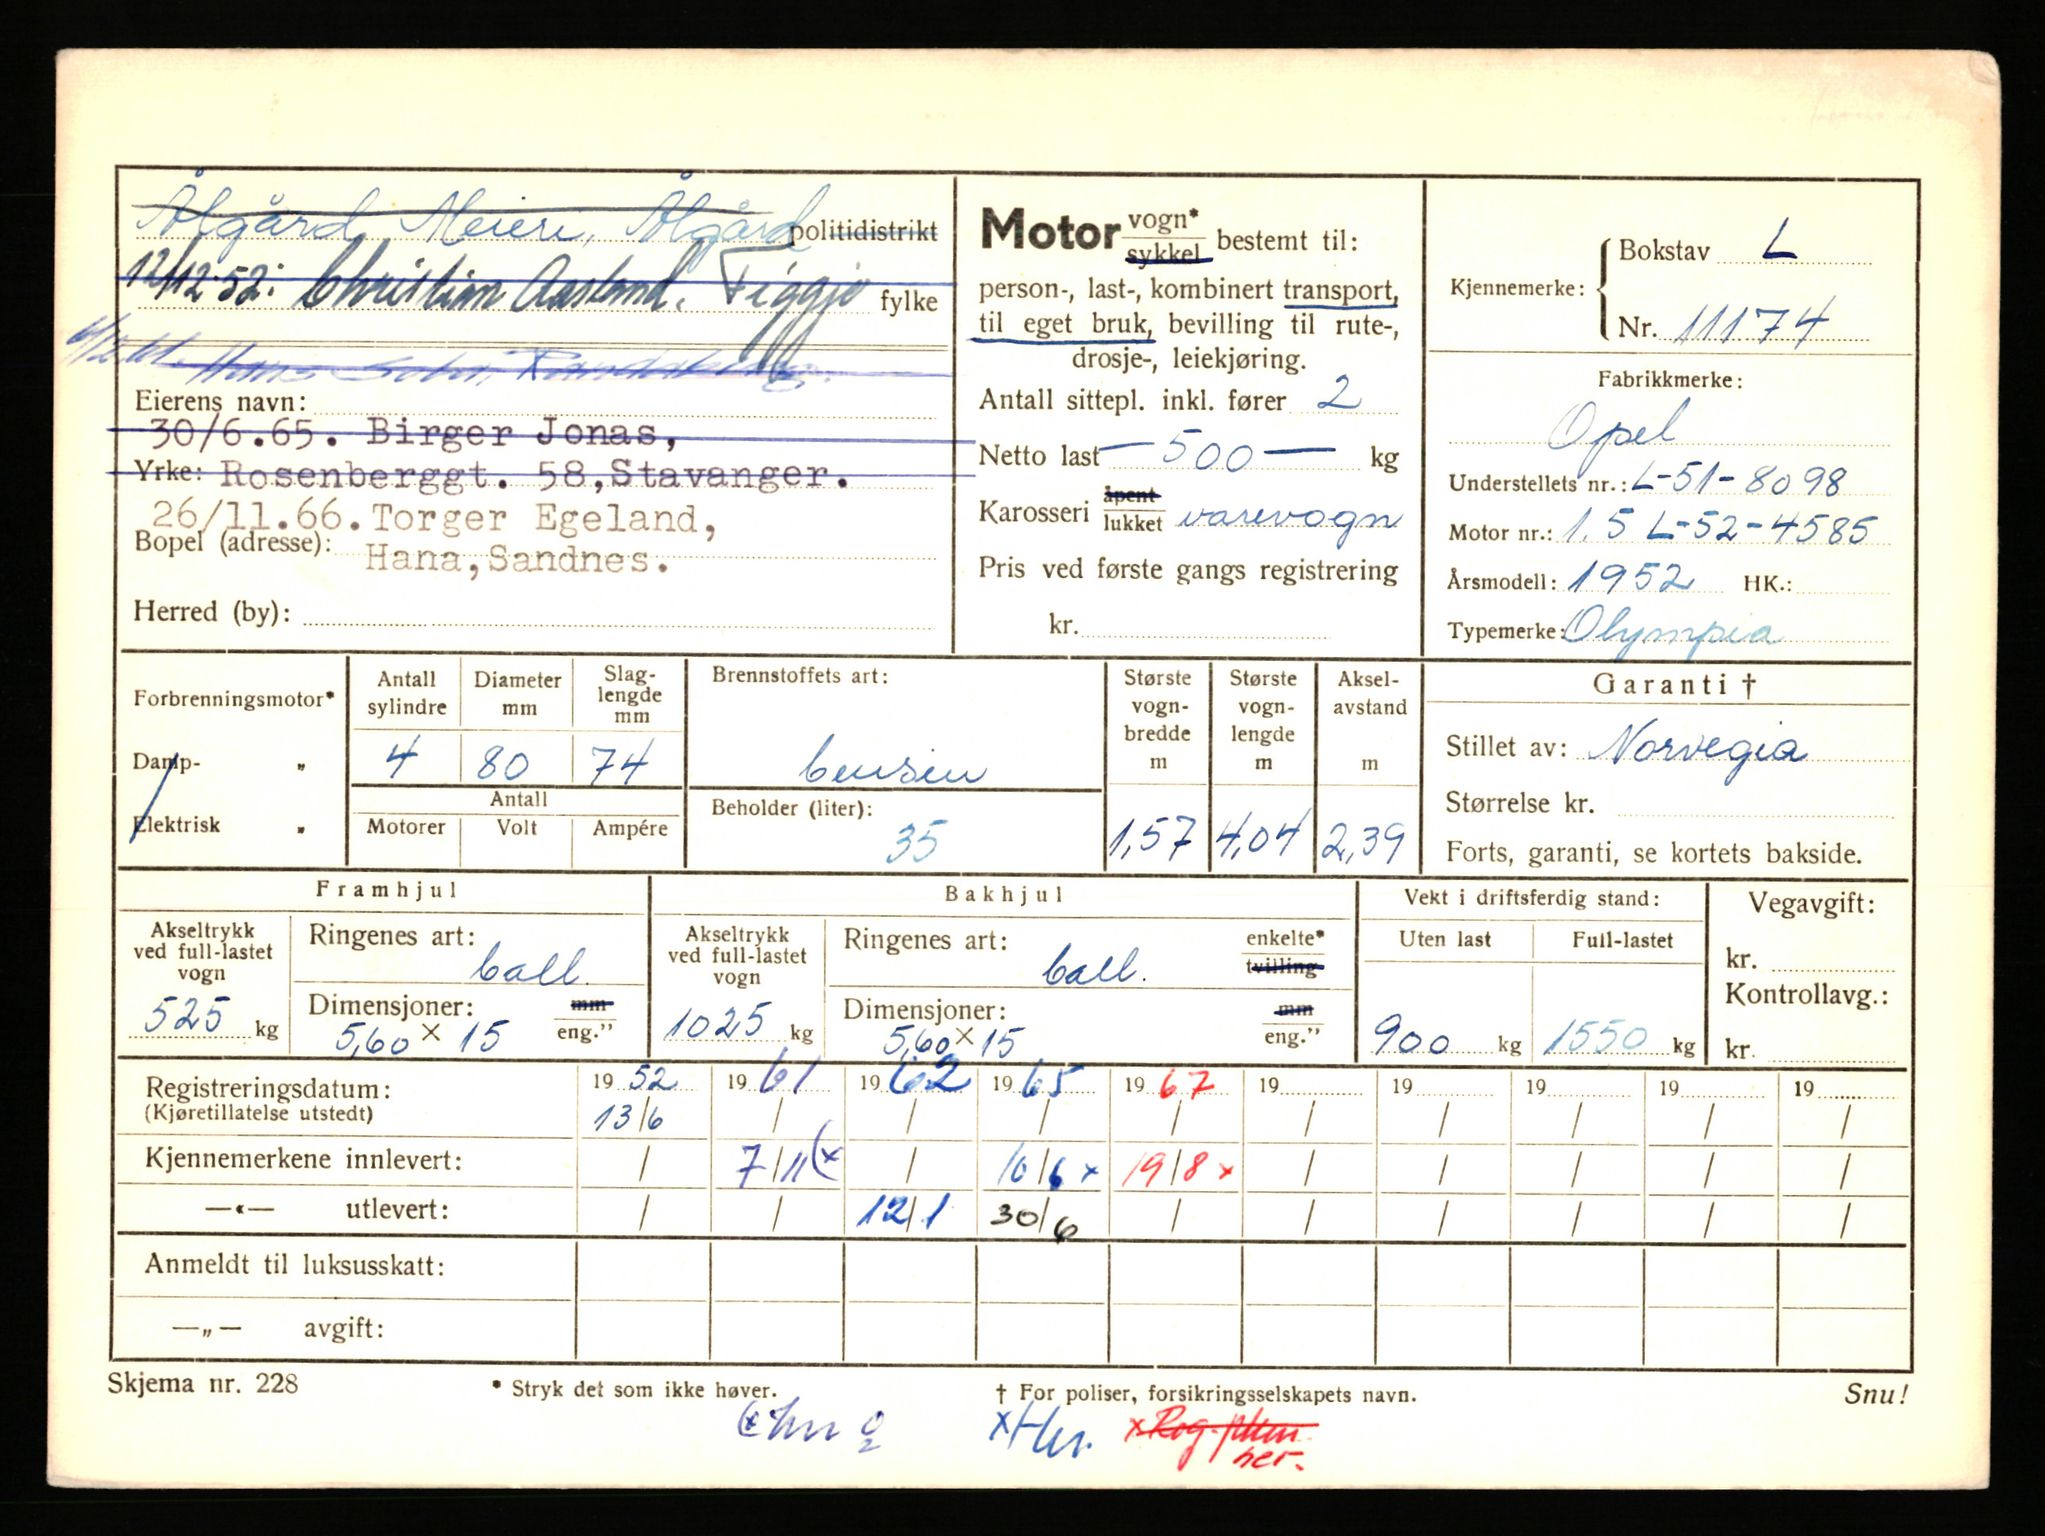 Ålgård Meieri, Ålgård politidistrikt
12/12-52: Christian Aasland. Figgjo fylke
Eierens navn:
30/6.65. Birger Jonas,
Yrke: Rosenberggt. 58, Stavanger.
26/11.66. Torger Egeland,
Bopel (adresse): Hana, Sandnes.
Herred (by):
Motor vogn* sykkel bestemt til:
person-, last-, kombinert transport,
til eget bruk, bevilling til rute-,
drosje-, leiekjøring.
Antall sittepl. inkl. fører 2
Netto last — 500 — kg
Karosseri åpent lukket varevogn
Pris ved første gangs registrering
kr.
Kjennemerke: Bokstav L
Nr. 11174
Fabrikkmerke:
Opel
Understellets nr.: L-51-8098
Motor nr.: 1.5 L-52-4585
Årsmodell: 1952 HK.:
Typemerke: Olympia
Forbrenningsmotor*
Damp- „
Elektrisk „
Antall sylindre Diameter mm Slag-lengde mm
4 80 74
Antall
Motorer Volt Ampére
Brennstoffets art:
bensin
Beholder (liter):
35
Største vogn-bredde m Største vogn-lengde m Aksel-avstand m
1,57 4,04 2,39
Garanti †
Stillet av: Norvegia
Størrelse kr.
Forts, garanti, se kortets bakside.
Framhjul
Akseltrykk ved full-lastet vogn
525 kg
Ringenes art:
ball.
Dimensjoner: mm
5,60 x 15 eng.”
Bakhjul
Akseltrykk ved full-lastet vogn
1025 kg
Ringenes art: enkelte* tvilling
ball.
Dimensjoner: mm
5,60 x 15 eng.”
Vekt i driftsferdig stand:
Uten last Full-lastet
900 kg 1550 kg
Vegavgift:
kr.
Kontrollavg.:
kr.
Registreringsdatum: 19 52 19 61 19 62 19 65 19 67 19 19 19 19 19
(Kjøretillatelse utstedt) 13/6 / / / / / / / / /
Kjennemerkene innlevert: / 7/11 (x / 10/6 x 19/8 x / / / / /
—«— utlevert: / / 12/1 30/6 / / / / / /
Anmeldt til luksusskatt:
—„— avgift:
Skjema nr. 228
* Stryk det som ikke høver.
† For poliser, forsikringsselskapets navn.
Snu!